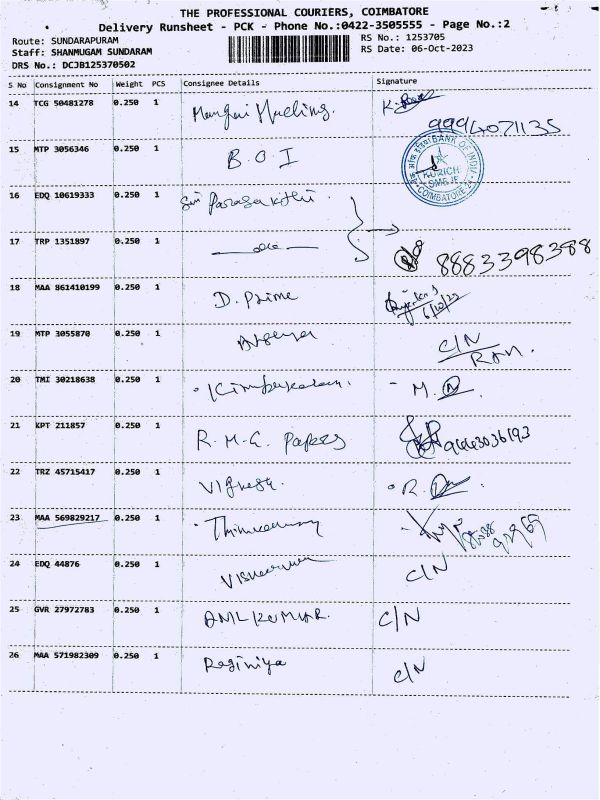 THE PROFESSIONAL COURIERS, COIMBATORE
Delivery Runsheet - PCK - Phone No.:0422-3505555 - Page No.:2
Route: SUNDARAPURAM RS No.: 1253705
Staff: SHANMUGAM SUNDARAM RS Date: 06-Oct-2023
DRS No.: DCJB125370502
S No Consignment No Weight PCS Consignee Details Signature
14 TCG 50481278 0.250 1
9994071135
15 MTP 3056346 0.250 1 B.O.I
BANK OF INDIA
COIMBATORE
16 EDQ 10619333 0.250 1
17 TRP 1351897 0.250 1 8883398388
18 MAA 861410199 0.250 1 D. Prime
19 MTP 3055870 0.250 1 C/N
20 TMI 30218638 0.250 1 M.
21 KPT 211857 0.250 1 R.M.G. Papers 9443036193
22 TRZ 45715417 0.250 1 Vignesh. R.
23 MAA 569829217 0.250 1
24 EDQ 44876 0.250 1 C/N
25 GVR 27972783 0.250 1 ANILKUMAR. C/N
26 MAA 571982309 0.250 1 Raginiya C/N